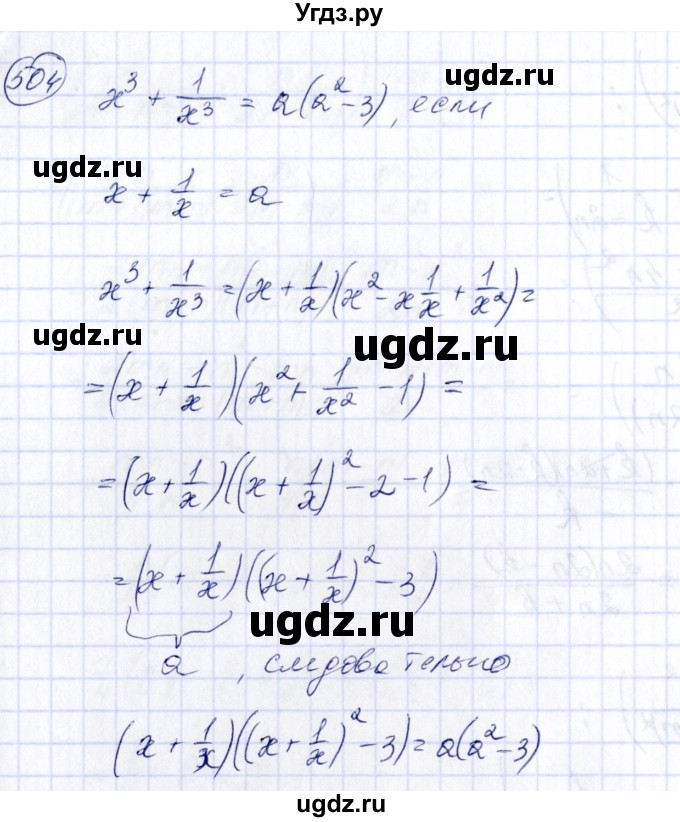 Угдз.ру
504
x³ + 1/x³ = a(a² - 3), если
ugdz.ru
x + 1/x = a
x³ + 1/x³ = (x + 1/x)(x² - x 1/x + 1/x²) =
ugdz.ru
ugdz.ru
= (x + 1/x)(x² + 1/x² - 1) =
= (x + 1/x)((x + 1/x)² - 2 - 1) =
= (x + 1/x)((x + 1/x)² - 3)
ugdz.ru
a, следовательно
(x + 1/x)((x + 1/x)² - 3) = a(a² - 3)
ugdz.ru